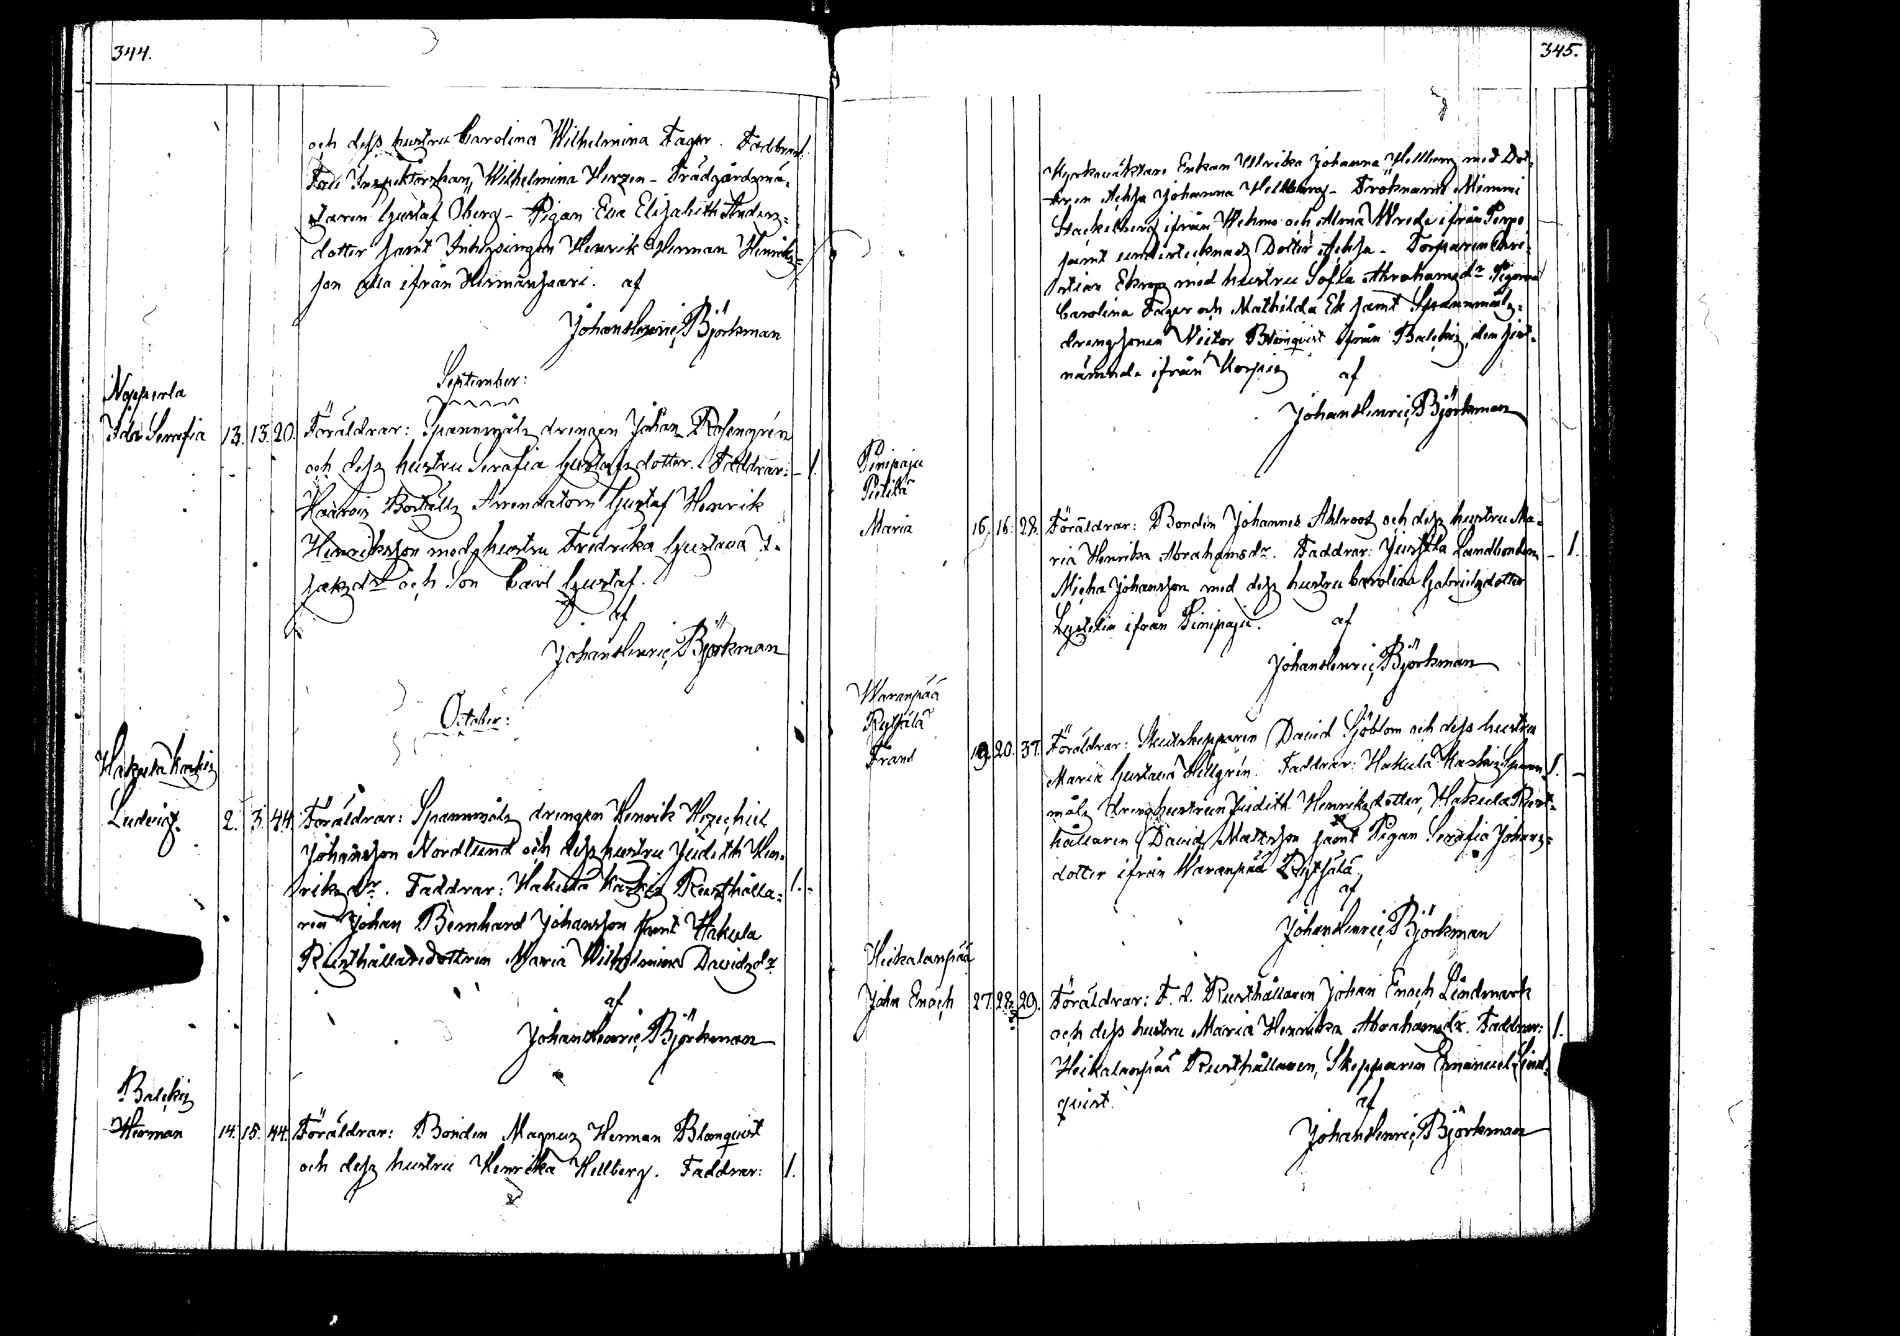 344.
och dess hustru Carolina Wilhelmina Fager. Faddrar:
Inspektorskan, Wilhelmina Herzen - Trädgårdsmä-
staren Gustaf Öberg - Pigan Eva Elisabeth Anders-
dotter samt Inhysingen Henrik Herman Henriks-
son alla ifrån Hermansaari. af
Johan Henric Björkman
September:
Nopperla
Ida Serafia 13. 13. 20. Föräldrar: Spannmåls drengen Johan Rosengrén
och dess hustru Serafia Gustafsdotter. Faddrar: - 1.
Bostälts Arrendatorn Gustaf Henrik
Henriksson med hustru Fredrika Gustava I-
saksdr och Son Carl Gustaf.
af
Johan Henric Björkman
October:
Hakula Kaskis
Ludvig. 2. 3. 44. Föräldrar: Spannmåls drengen Henrik Hezechiel
Johansson Nordlund och dess hustru Judith Hen-
riksdr. Faddrar: Hakula Kaskis Rusthålla- 1.
ren Johan Bernhard Johansson samt Hakula
Rusthållaredottren Maria Wilhelmina Davidsdr
af
Johan Henric Björkman
Balckis
Herman 14. 15. 44. Föräldrar: Bonden Magnus Herman Blomqvist
och dess hustru Henrika Hellberg. Faddrar: 1.
345.
Kyrkowäktare Enkan Ulrika Johanna Hellberg med Dot-
tren Johanna Hellberg - Fröknarne Mimmi
Stackelberg ifrån Wehmo och Alma Wrede ifrån
samt undertecknads Dotter - Torparen Chri-
stian Ekrop med hustru Sofia Abrahamsdr Pigorna
Carolina Fager och Mathilda Ek samt Spannmåls-
drengsonen Victor Blomqvist ifrån Balckis, den sist-
nämnda ifrån Korpis af
Johan Henric Björkman
Pinipaju
Pietilä
Maria 16. 16. 28. Föräldrar: Bonden Johannes Ahlroos och dess hustru Ma-
ria Henrika Abrahamsdr. Faddrar: Landbonden - 1.
Micha Johansson med dess hustru Carolina Gabrielsdotter
ifrån Pinipaju. af
Johan Henric Björkman
Waranpää
Ryssälä
Frans 19. 20. 37. Föräldrar: Skutskepparen David Sjöblom och dess hustru
Maria Gustava Hellgrén. Faddrar: Hakula Kaskis Spann- 1. -
måls drenghustrun Judith Henriksdotter, Hakula Rust-
hållaren David Mattsson samt Pigan Serafia Johans-
dotter ifrån Waranpää Ryssälä.
af
Johan Henric Björkman
Heikalanpää
John Enoch 27. 28. 29. Föräldrar: F. d. Rusthållaren Johan Enoch Lindmark
och dess hustru Maria Henrika Abrahamsdr. Faddrar: 1.
Heikalanpää Rusthållaren, Skepparen Emanuel Lind-
qvist.
af
Johan Henric Björkman